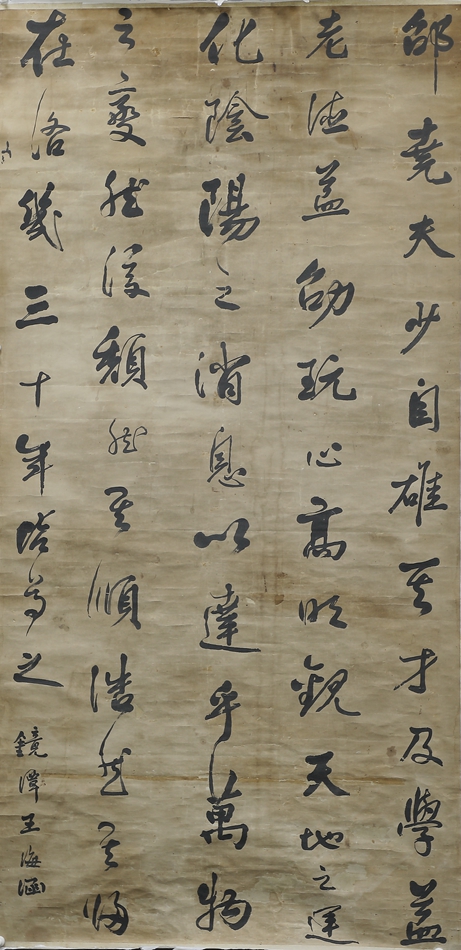 邵堯夫少自雄其才及學益
老德益劭玩心高明觀天地之運
化陰陽之消息以達乎萬物
之變然後頹然其順浩然其歸
在洛幾三十年尊之
鏡潭王海涵